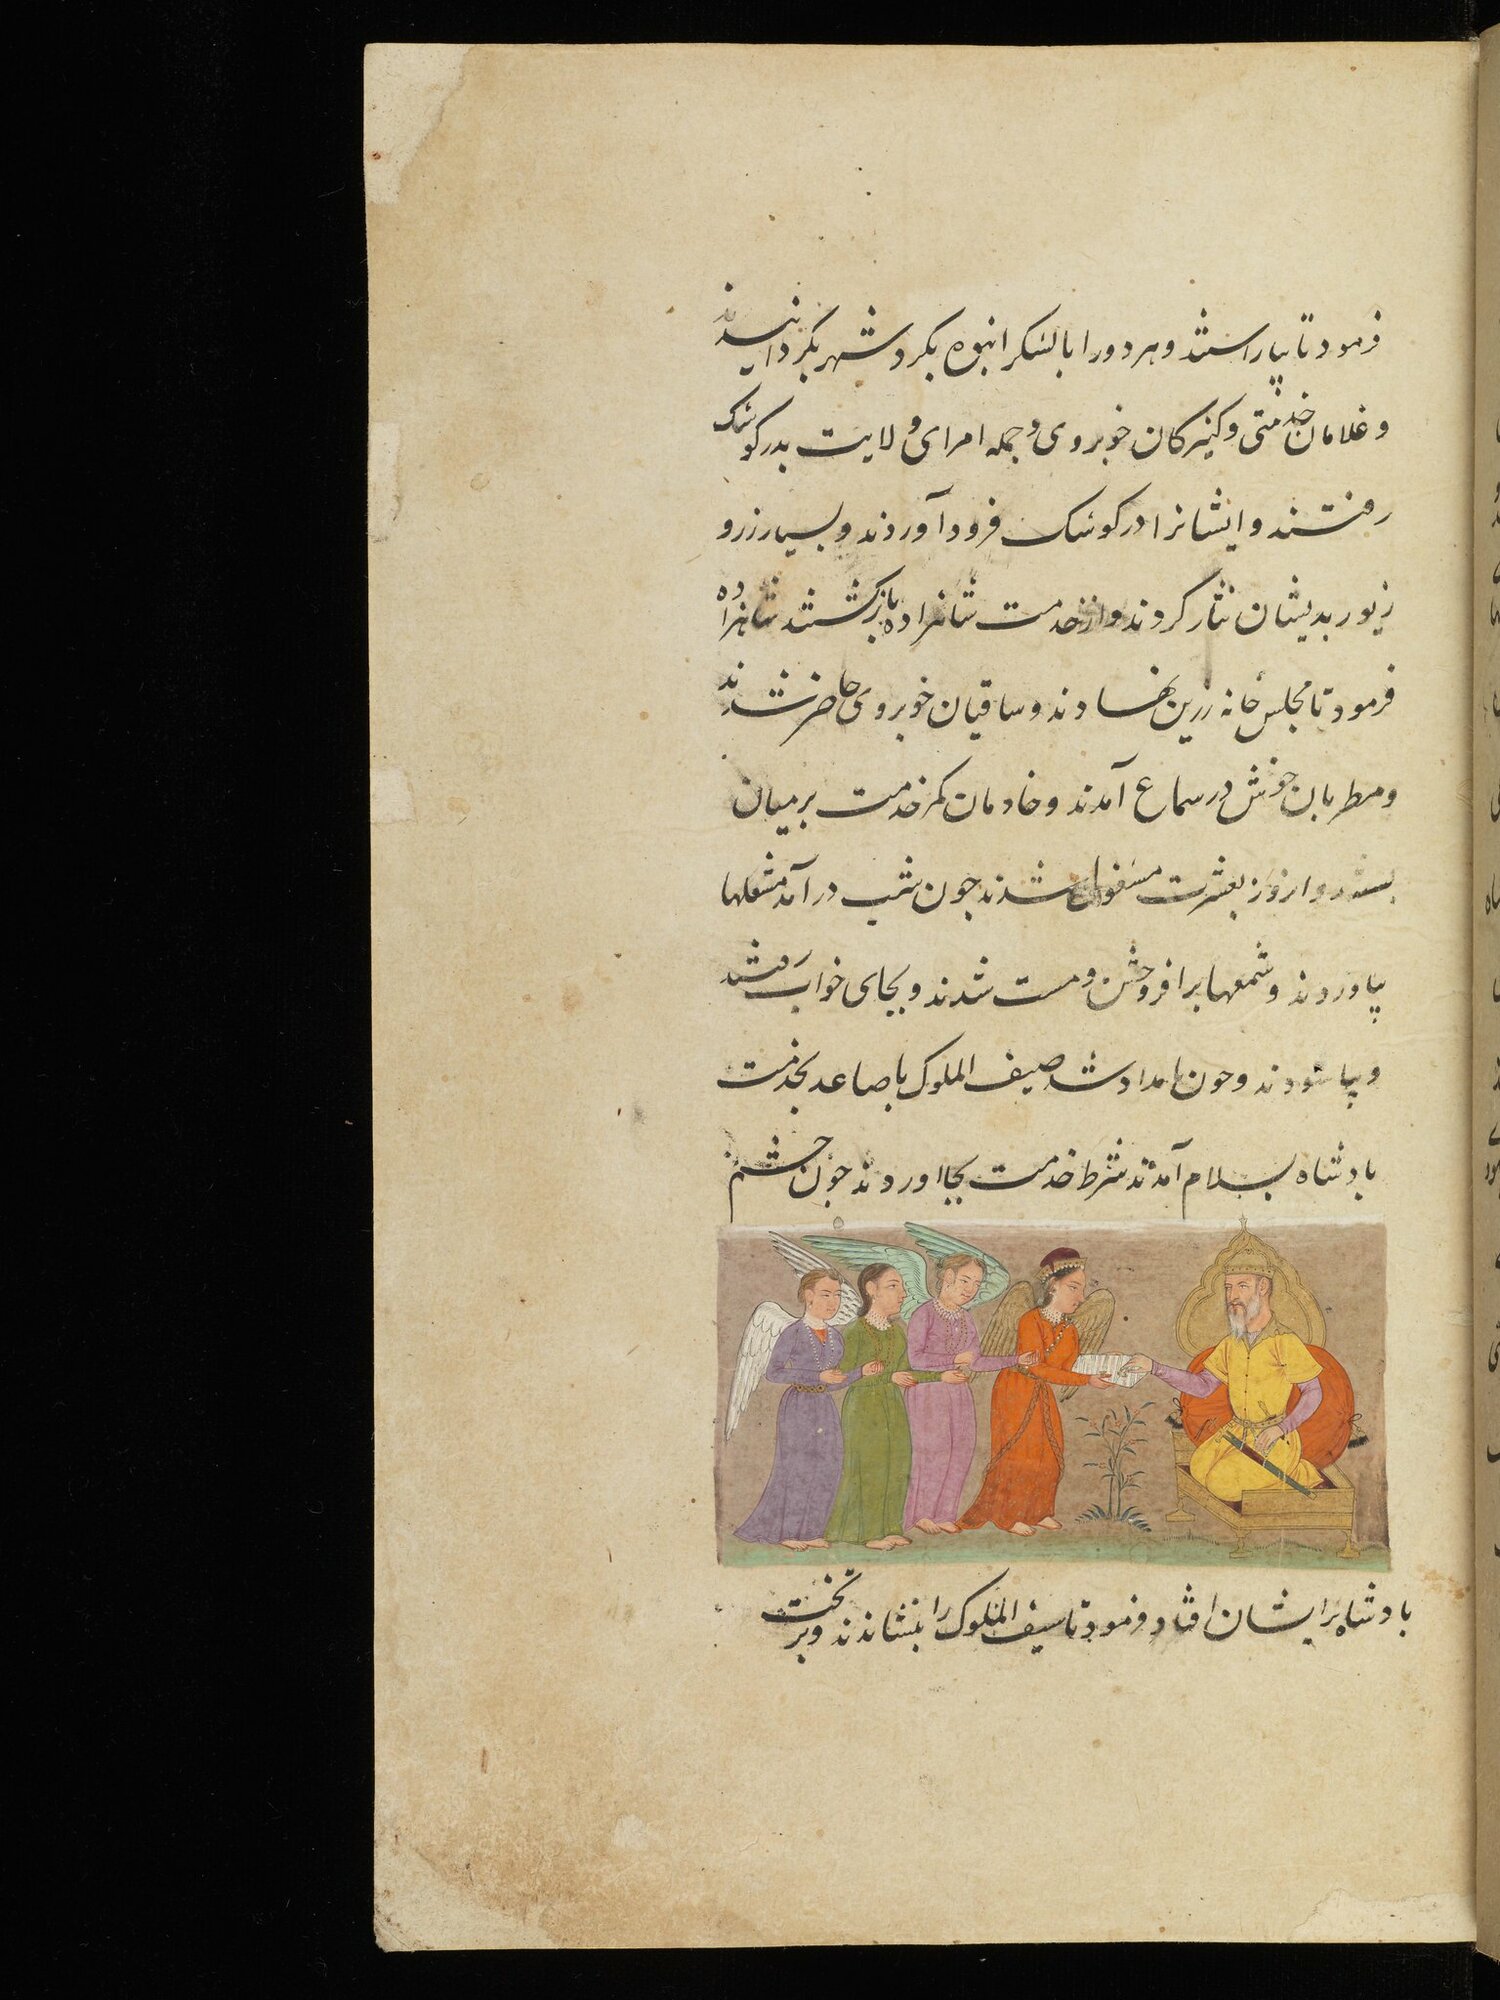 فرمود تا بیاراستند و هر دو را با لشکر انبوه بکرد شهر بکردانیدند
و غلامان خدمتی و کنیزکان خوبروی و جمله امرای ولایت بدر کوشک
رفتند و ایشانرا در کوشک فرود آوردند و بسیار زر و
زیور بدیشان نثار کردند و از خدمت شاهزاده بازکشتند شاهزاده
فرمود تا مجلس خانه زرین نهادند و ساقیان خوبروی حاضر شدند
و مطربان خوش در سماع آمدند و خادمان کمر خدمت بر میان
بستند و آنروز بعشرت مشغول شدند چون شب درآمد مشعلها
بیاوردند و شمعها برافروختن و مست شدند و بجای خواب رفتند
و بیاسودند و چون بامداد شد صیف الملوک با صاعد بخدمت
بادشاه بسلام آمدند شرط خدمت بجا اوردند چون چشم
بادشاه برایشان افتاد فرمود تا سیف الملوک را بنشاندند و بر تخت